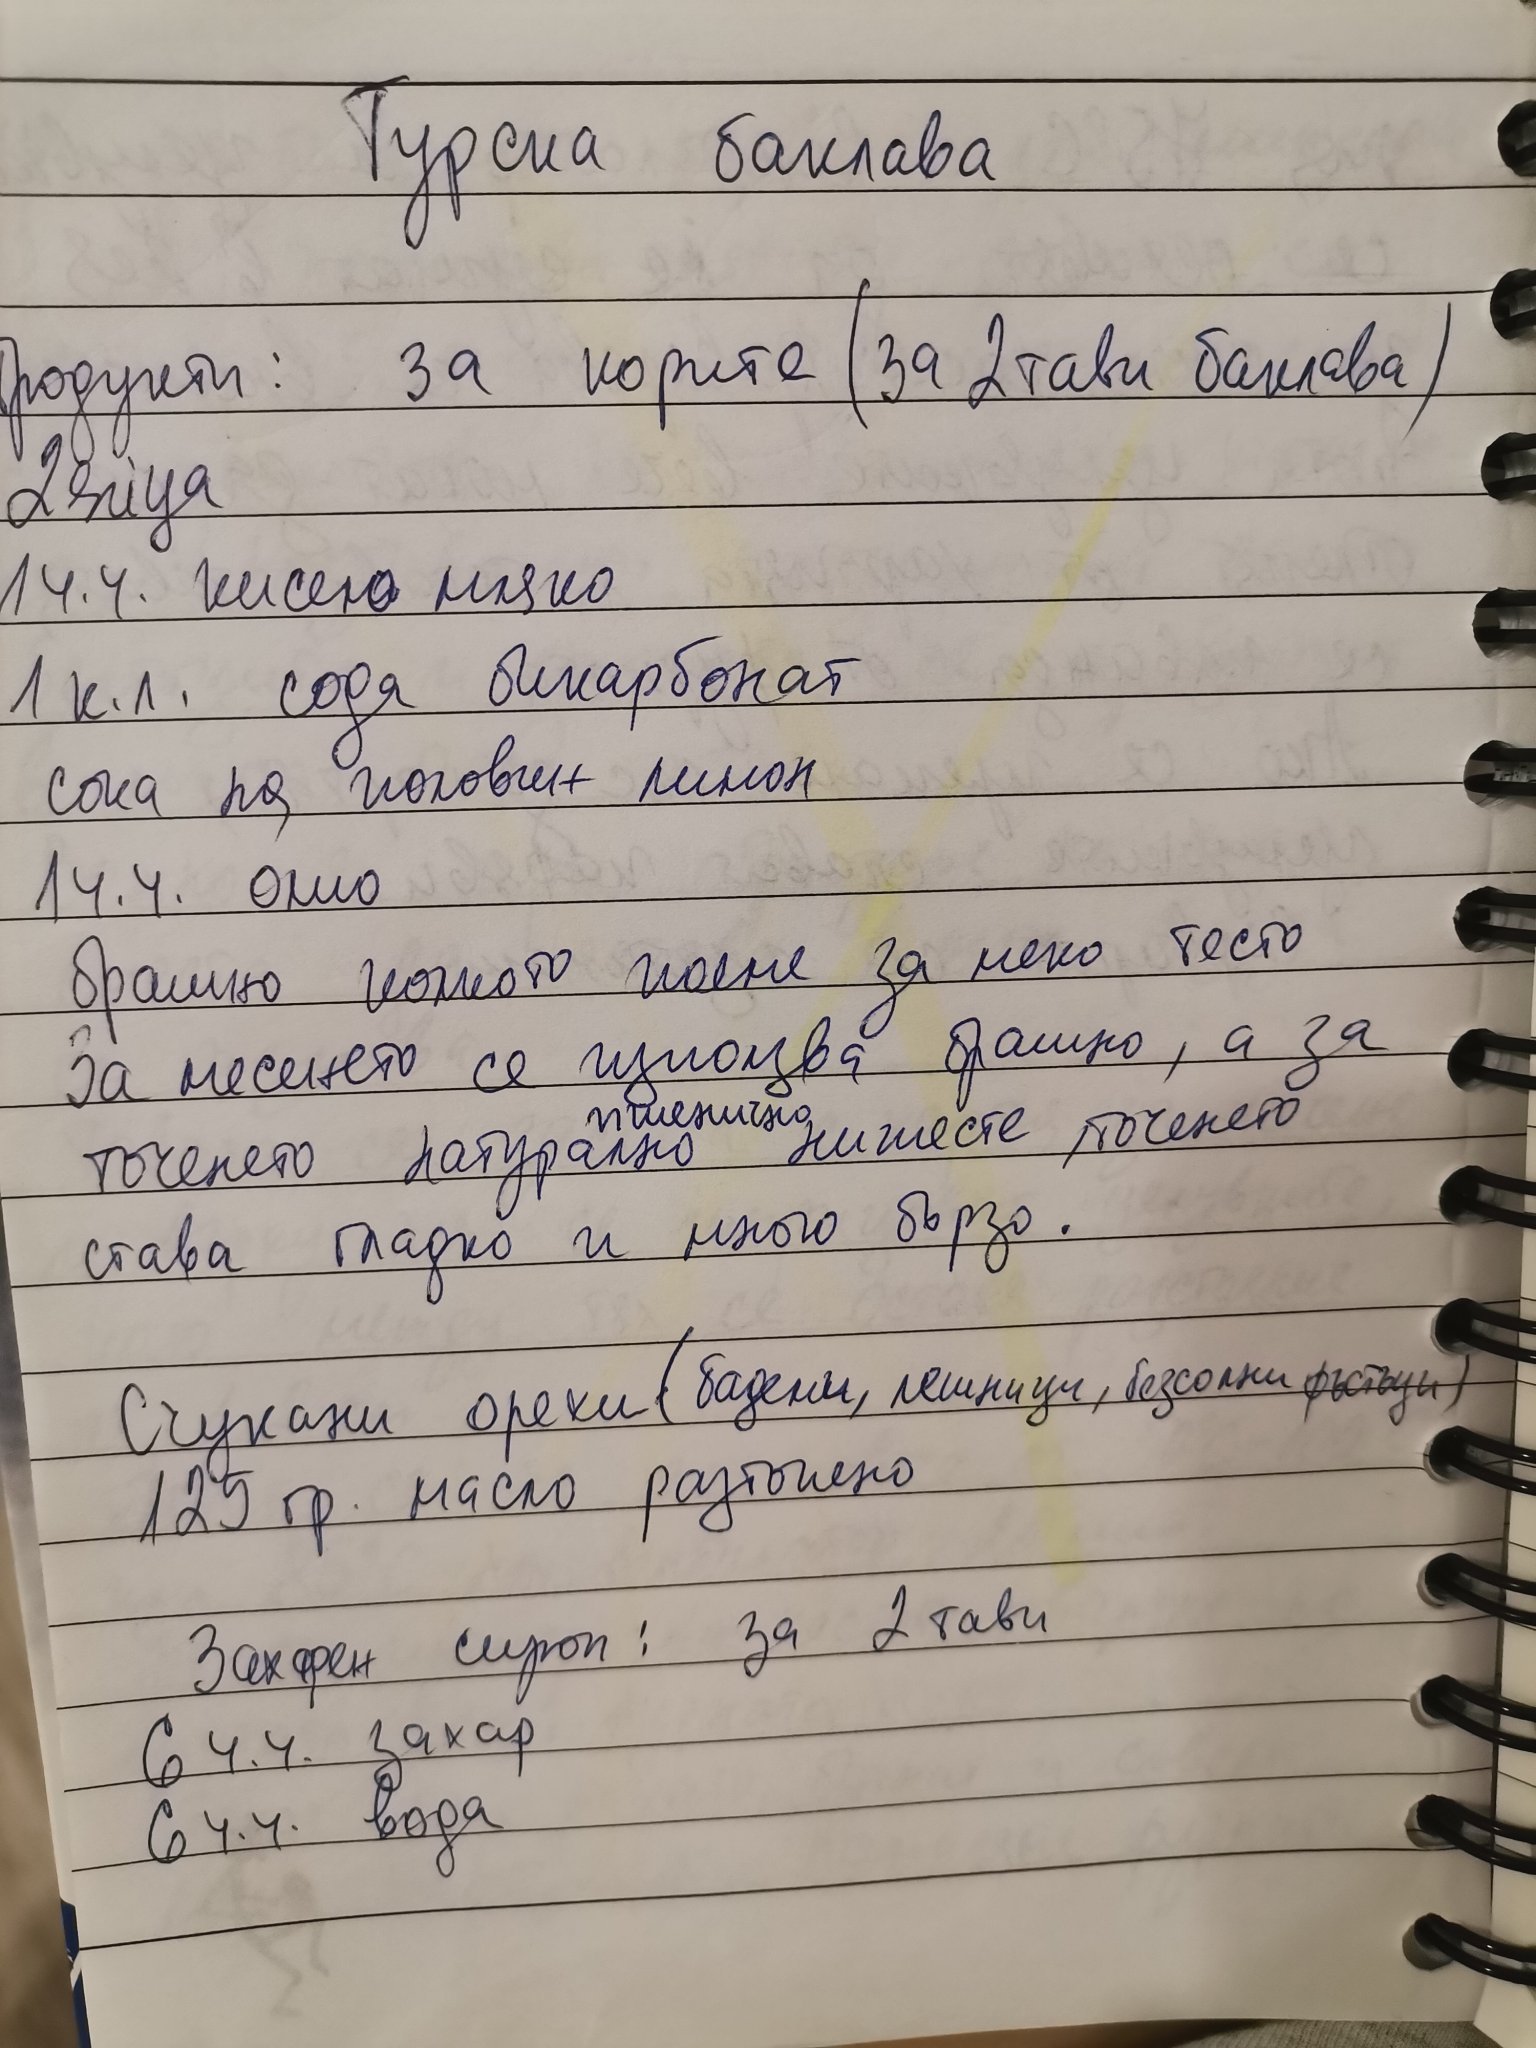 Турска баклава
Продукти: за корите (за 2 тави баклава)
2 яйца
1 ч.ч. кисело мляко
1 к.л. сода бикарбонат
сока на половин лимон
1 ч.ч. олио
брашно колкото поеме за меко тесто
За месенето се използва брашно, а за
пшенично
точенето натурално нишесте, точенето
става гладко и много бързо.
Счукани орехи (бадеми, лешници, безсолни фъстъци)
125 гр. масло разтопено
Захарен сироп: за 2 тави
6 ч.ч. захар
6 ч.ч. вода